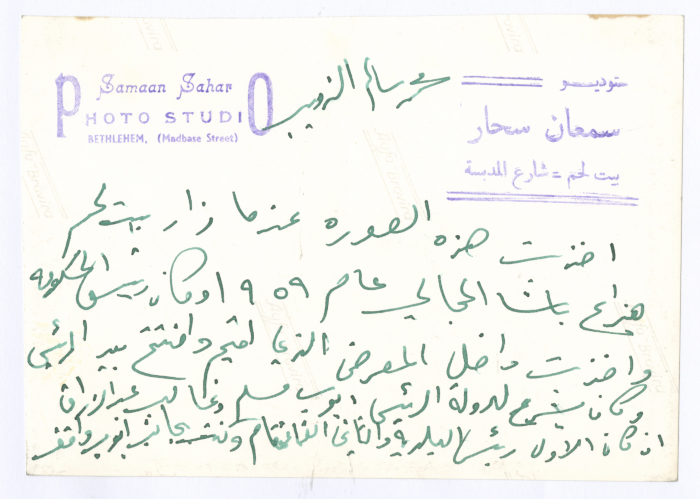 Samaan Sahar
PHOTO STUDIO
BETHLEHEM, (Madbase Street)
ستوديو
سمعان سحار
بيت لحم = شارع المدبسة
سالم الذويب
اخذت هذه الصوره عندما زار بيت لحم
هزاع باشا المجالي عام ٩٥٩ ا وكان رئيس الحكومه
واخذت داخل المعرض الذي اقيم وافتتح بيد الرئيس
وكان يشرح لدولة الرئيس ايوب مسلم وغالب عبد الرزاق
اذ كان الاول رئيس البلدية والثاني القائمقام وننتسب بجانب ايوب واقف